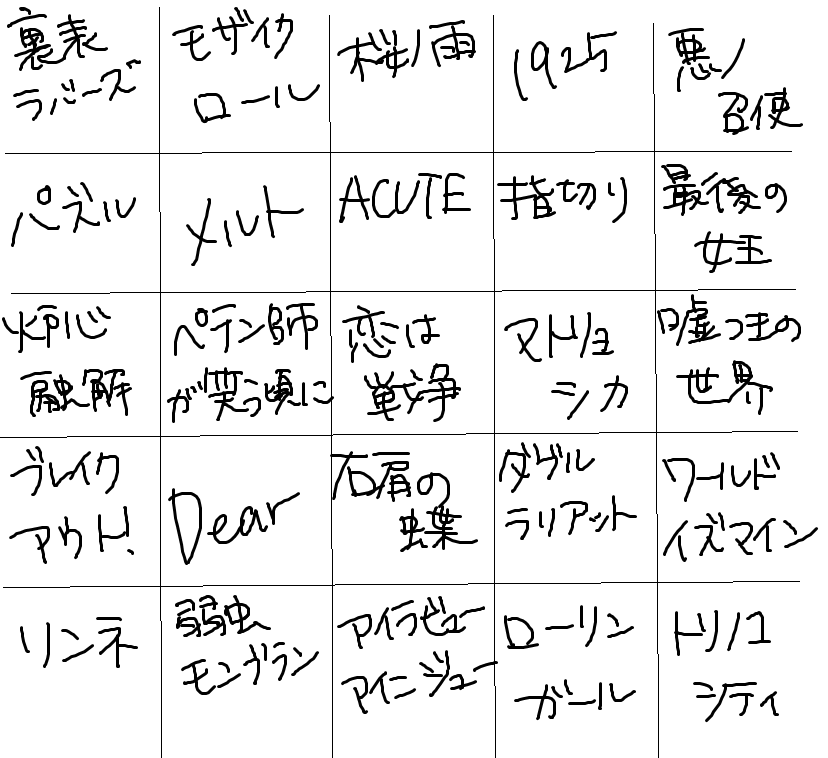 裏表
ラバーズ
モザイク
ロール
桜ノ雨
1925
悪ノ
召使
パズル
メルト
ACUTE
指切り
最後の
女王
炉心
融解
ペテン師
が笑う頃に
恋は
戦争
マトリョ
シカ
嘘つきの
世界
ブレイク
アウト!
Dear
右肩の
蝶
ダブル
ラリアット
ワールド
イズマイン
リンネ
弱虫
モンブラン
アイラビュー
アイニージュー
ローリン
ガール
トリノコ
シティ